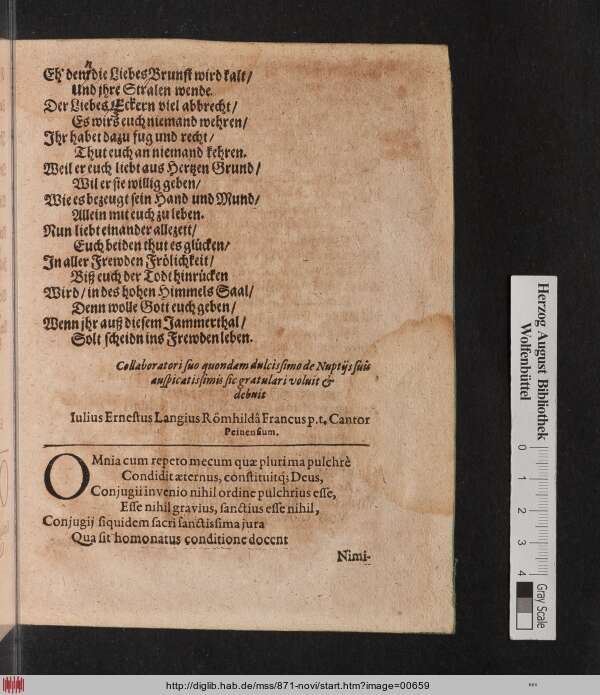 Eh' denn die Liebes Brunst wird kalt/
Und jhre Stralen wende.
Der Liebes Eckern viel abbrecht/
Es wirs euch niemand wehren/
Ihr habet dazu fug und recht/
Thut euch an niemand kehren.
Weil er euch liebt aus Hertzen Grund/
Wil er sie willig geben/
Wie es bezeugt sein Hand und Mund/
Allein mit euch zu leben.
Nun liebt einander allezeit/
Euch beiden thut es glücken/
In aller Frewden Frölichkeit/
Biß euch der Todt hinrücken
Wird/ in des hohen Himmels Saal/
Denn wolle Gott euch geben/
Wenn jhr auß diesem Jammerthal/
Solt scheidn ins Frewden leben.
Collaboratori suo quondam dulcissimo de Nuptijs suis
auspicatissimis sic gratulari voluit &
debuit
Iulius Ernestus Langius Römhildâ Francus p.t. Cantor
Peinensium.
OMnia cum repeto mecum quæ plurima pulchrè
Condidit æternus, constituitq; Deus,
Conjugii invenio nihil ordine pulchrius esse,
Esse nihil gravius, sanctius esse nihil,
Conjugij siquidem sacri sanctissima jura
Qua sit homonatus conditione docent
Nimi-
Herzog August Bibliothek
Wolfenbüttel
0 1 2 3 4
Gray Scale
http://diglib.hab.de/mss/871-novi/start.htm?image=00659